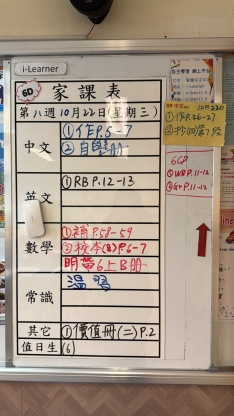 i-Learner
6D
家課表
第八週10月22日(星期三)
中文
①作P.5-7
②自學冊
英文
①RB P.12-13
數學
①補P.58-59
③校本(B)P.6-7
明帶6上B冊
常識
溫習
其它
①價值冊(二)P.2
值日生
(6)
自主學習 網上平台
10月22日
①作P.26-27
②抄詞第7段
6GP
①WB P.11-12
②GP P.11-12